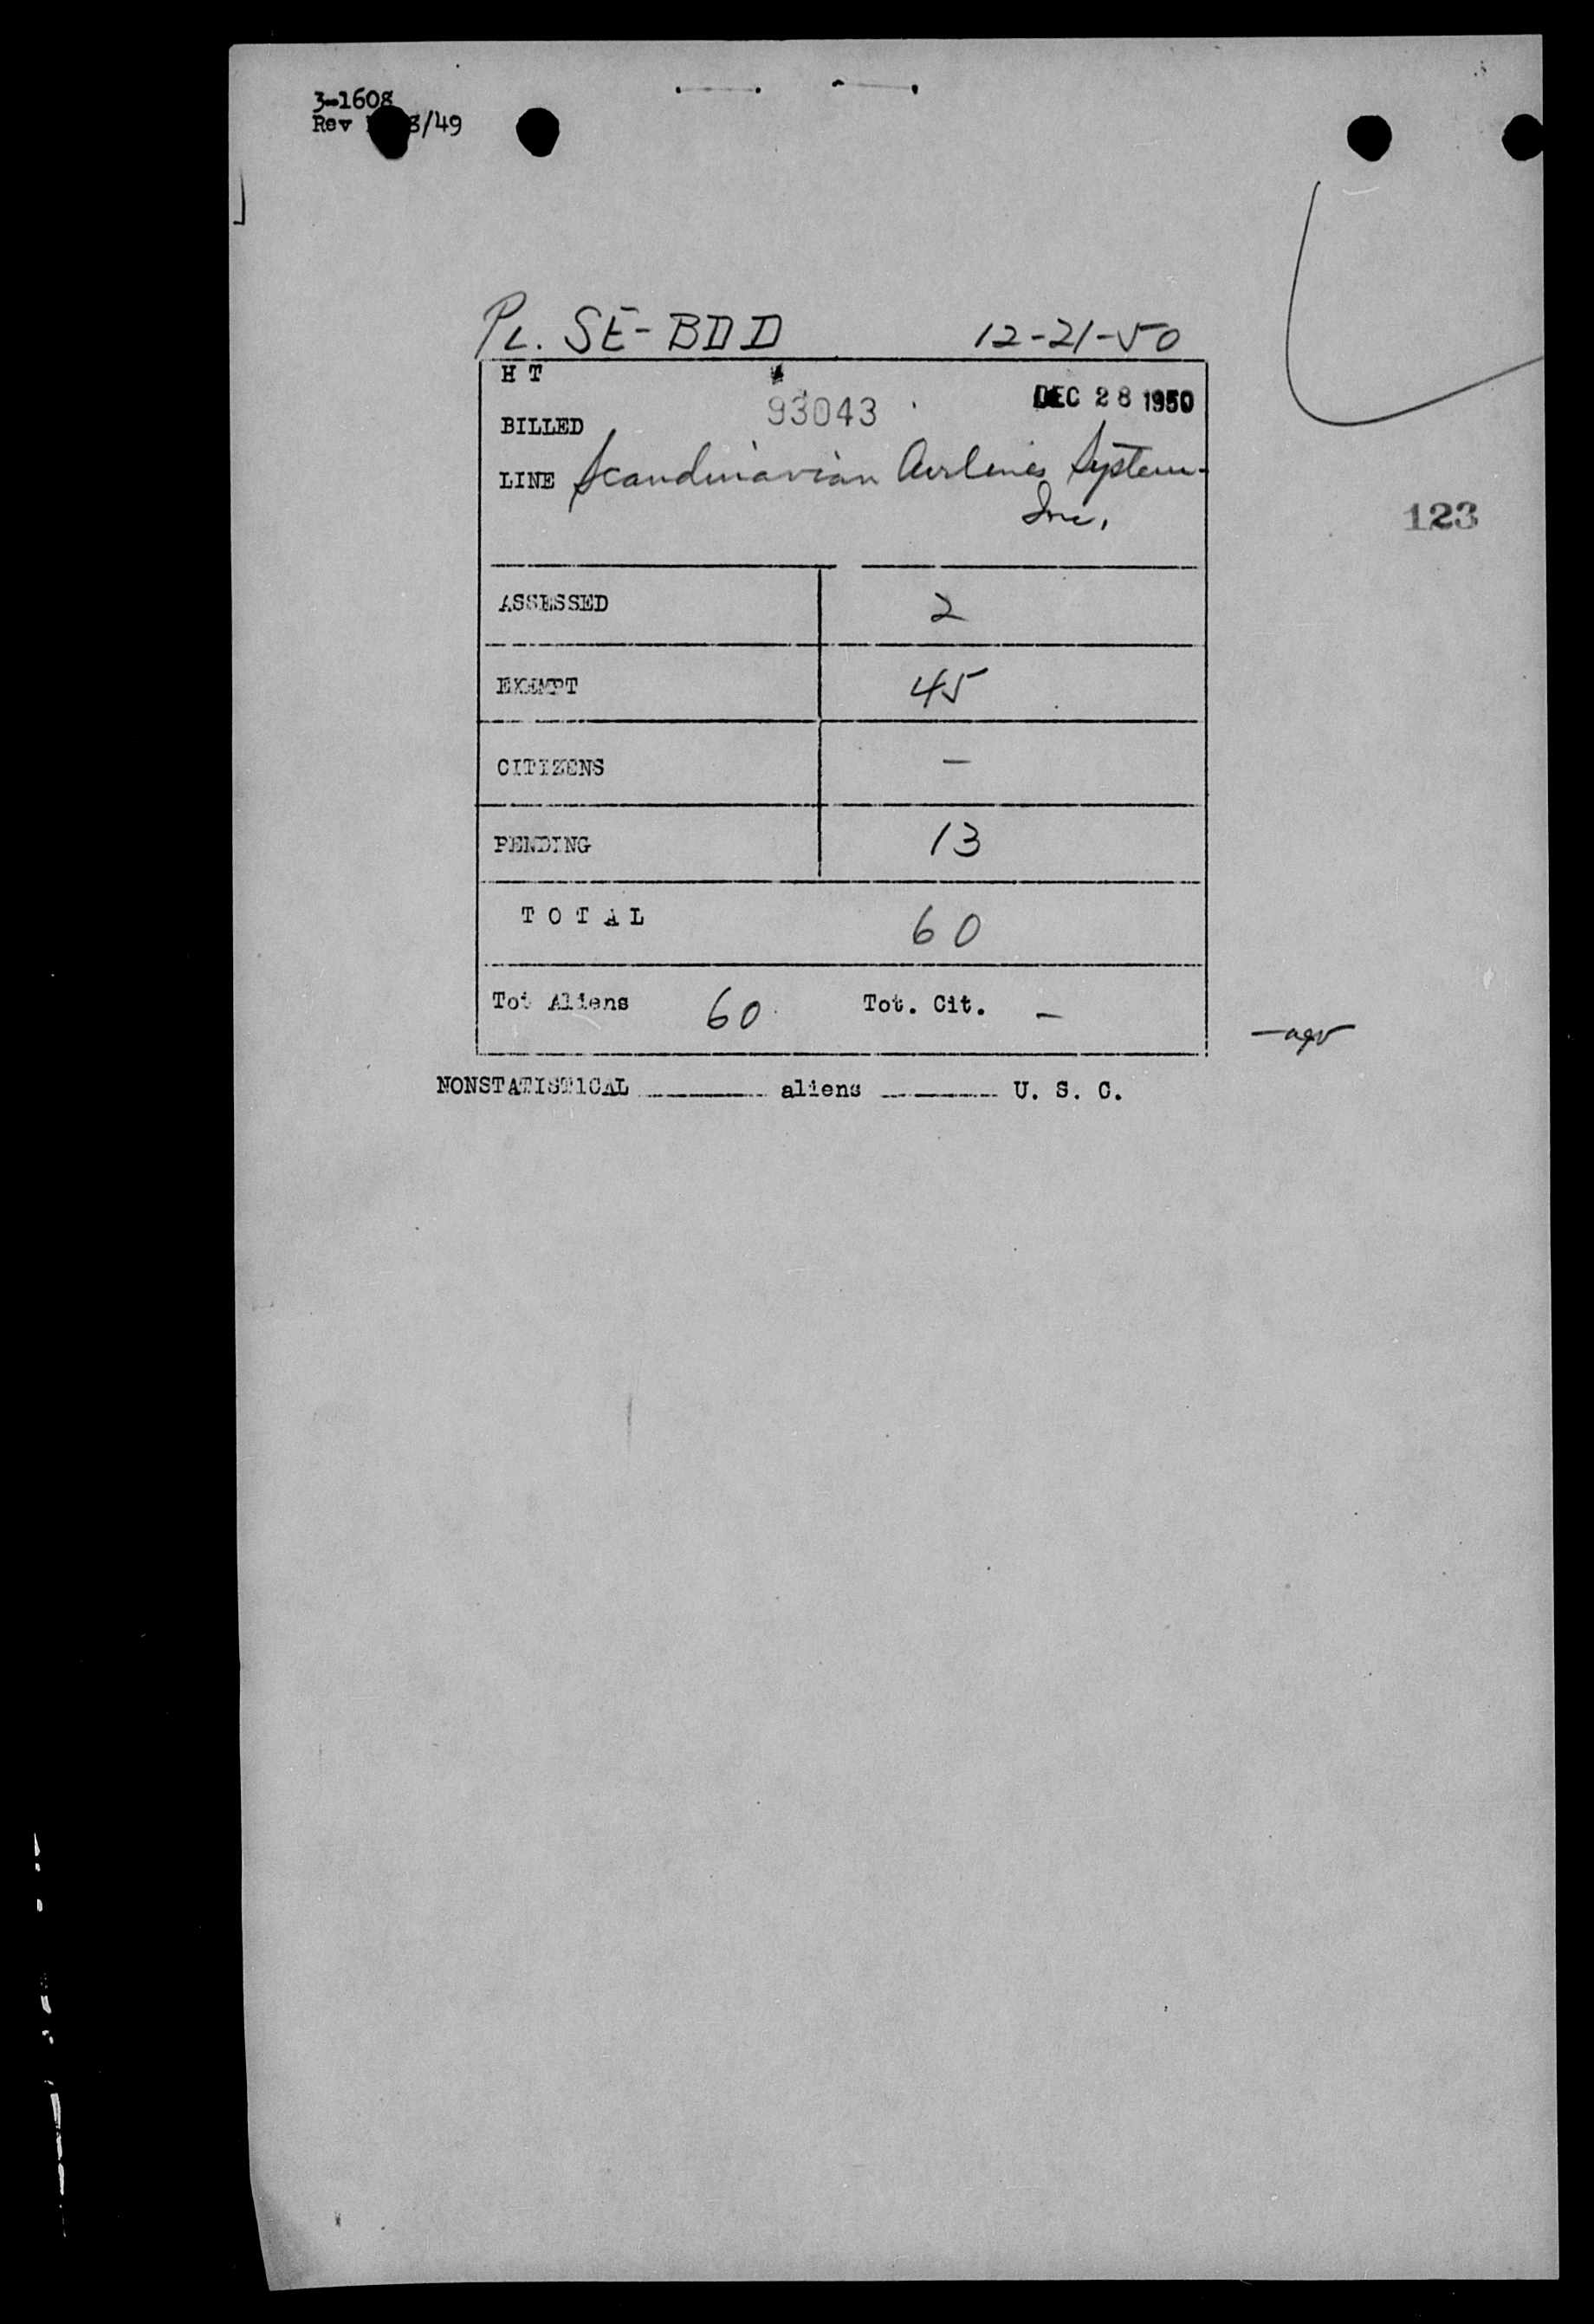 3-1608
Rev 8/49
PL. SE-BDD 12-21-50
H T
93043 DEC 28 1950
BILLED
LINE Scandinavian Airlines System
Inc.
123
ASSESSED 2
EXEMPT 45
CITIZENS —
PENDING 13
T O T A L 60
Tot Aliens 60 Tot. Cit. —
NONSTATISTICAL ________ aliens ________ U. S. C.